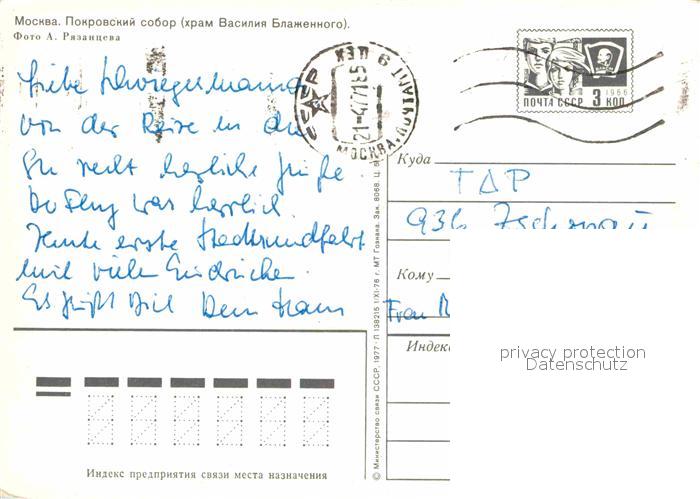 Москва. Покровский собор (храм Василия Блаженного).
Фото А. Рязанцева
Liebe Schwiegermama
von der Reise in die
SU recht herzliche Grüße.
Der Flug war herrlich.
Heute erste Stadtrundfahrt
mit vielen Eindrücken.
Es grüßt Dich Dein Hans
МОСКВА
ПОЧТАМТ
21-4771
ПОЧТА СССР 3 КОП
1966
Куда
ГДР
936 Zschopau
Кому
Frau
Индекс
privacy protection
Datenschutz
Индекс предприятия связи места назначения
© Министерство связи СССР, 1977. Л 138215 1/XI-76 г. МТ Гознака. Зак. 8068. Ц.